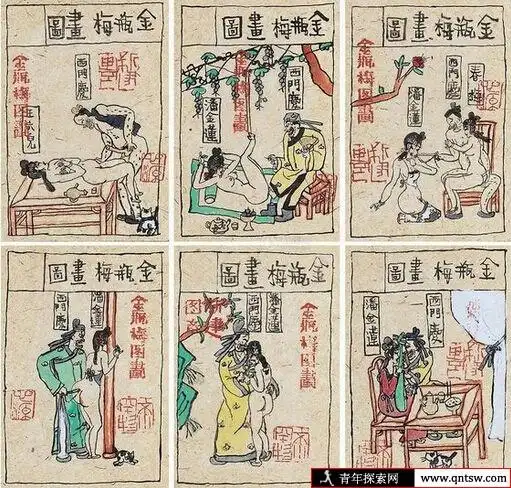 金瓶梅畫圖
西門慶
金瓶梅图画
金瓶梅畫圖
西門慶
潘金蓮
金瓶梅图画
金瓶梅畫圖
春梅
西門慶
潘金蓮
金瓶梅畫圖
潘金蓮
西門慶
金瓶梅图画
金瓶梅畫圖
潘金蓮
西門慶
金瓶梅图画
金瓶梅畫圖
西門慶
潘金蓮
青年探索网
www.qntsw.com